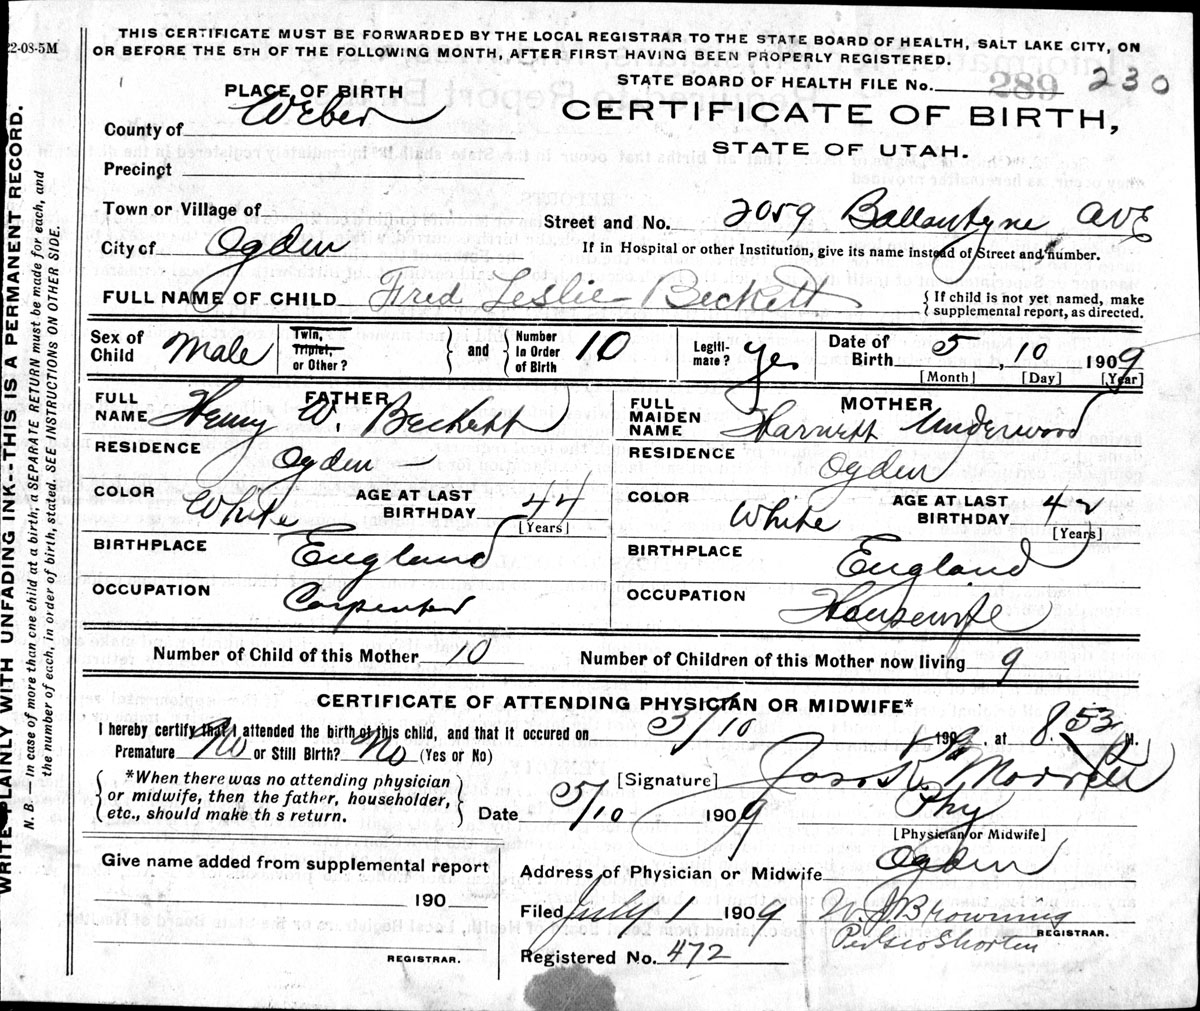 22-08-5M
THIS CERTIFICATE MUST BE FORWARDED BY THE LOCAL REGISTRAR TO THE STATE BOARD OF HEALTH, SALT LAKE CITY, ON
OR BEFORE THE 5TH OF THE FOLLOWING MONTH, AFTER FIRST HAVING BEEN PROPERLY REGISTERED.
STATE BOARD OF HEALTH FILE No. 289 230
PLACE OF BIRTH
CERTIFICATE OF BIRTH,
STATE OF UTAH.
County of Weber
Precinct
Town or Village of
Street and No. 2059 Ballantyne AVE
City of Ogden
If in Hospital or other Institution, give its name instead of Street and number.
FULL NAME OF CHILD Fred Leslie Beckett
If child is not yet named, make
supplemental report, as directed.
Sex of Child Male
Twin, Triplet, or Other?
and
Number in Order of Birth 10
Legitimate? Yes
Date of Birth 5, 10 1909
[Month] [Day] [Year]
FATHER
FULL NAME Henry W. Beckett
RESIDENCE Ogden
COLOR White AGE AT LAST BIRTHDAY 44
[Years]
BIRTHPLACE England
OCCUPATION Carpenter
MOTHER
FULL MAIDEN NAME Harriett Underwood
RESIDENCE Ogden
COLOR White AGE AT LAST BIRTHDAY 42
[Years]
BIRTHPLACE England
OCCUPATION Housewife
Number of Child of this Mother 10 Number of Children of this Mother now living 9
CERTIFICATE OF ATTENDING PHYSICIAN OR MIDWIFE*
I hereby certify that I attended the birth of this child, and that it occured on 5/10 190 , at 8.53 M.
Premature No or Still Birth? No (Yes or No)
*When there was no attending physician
or midwife, then the father, householder,
etc., should make th s return.
[Signature] Morrell
Date 5/10 1909 Phy
[Physician or Midwife]
Give name added from supplemental report
190
REGISTRAR.
Address of Physician or Midwife Ogden
Filed July 1 1909 W. J. Browning
REGISTRAR.
Per Geo Shorten
Registered No. 472
WRITE PLAINLY WITH UNFADING INK--THIS IS A PERMANENT RECORD.
N. B.— In case of more than one child at a birth, a SEPARATE RETURN must be made for each, and
the number of each, in order of birth, stated. SEE INSTRUCTIONS ON OTHER SIDE.